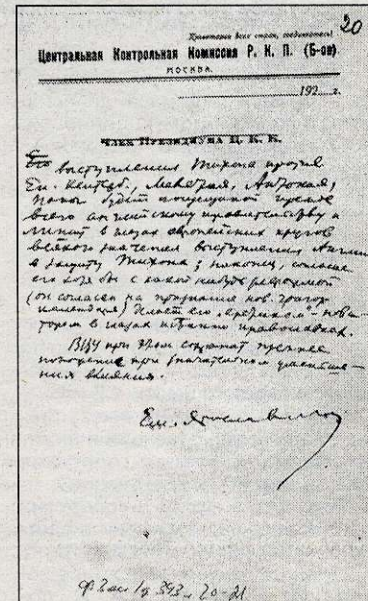 20
Пролетарии всех стран, соединяйтесь!
Центральная Контрольная Комиссия Р. К. П. (Б-ов)
МОСКВА.
192 г.
ЧЛЕН ПРЕЗИДИУМА Ц. К. К.
выступления Тихона против
Еп. Кентерб., Антония,
папы будет пощечиной прежде
всего английскому правительству и
лишит в глазах европейских кругов
всякого значения выступления Англии
в защиту Тихона; наконец, согласие
его хотя бы с какой нибудь реформой
(он согласен на признание нов. григор.
календаря) делает его „еретиком“ – нова-
тором в глазах истинно православных.
ВЦУ при этом сохранит прежнее
положение при значительном уменьше-
ния влияния.
Ем. Ярославский
20-21